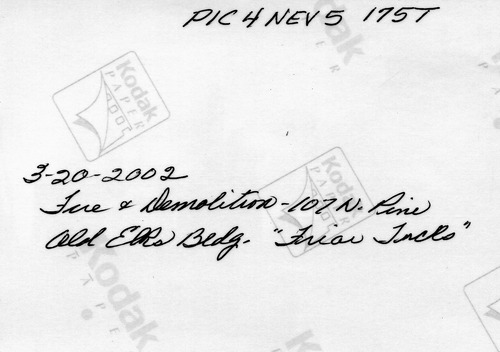 PIC 4 NEV 5 175T
Kodak
Kodak
PAPER
3-20-2002
Fire & Demolition - 107 N. Pine
Old Elks Bldg. "Friar Tucks"
Kodak
PAPER
Kodak